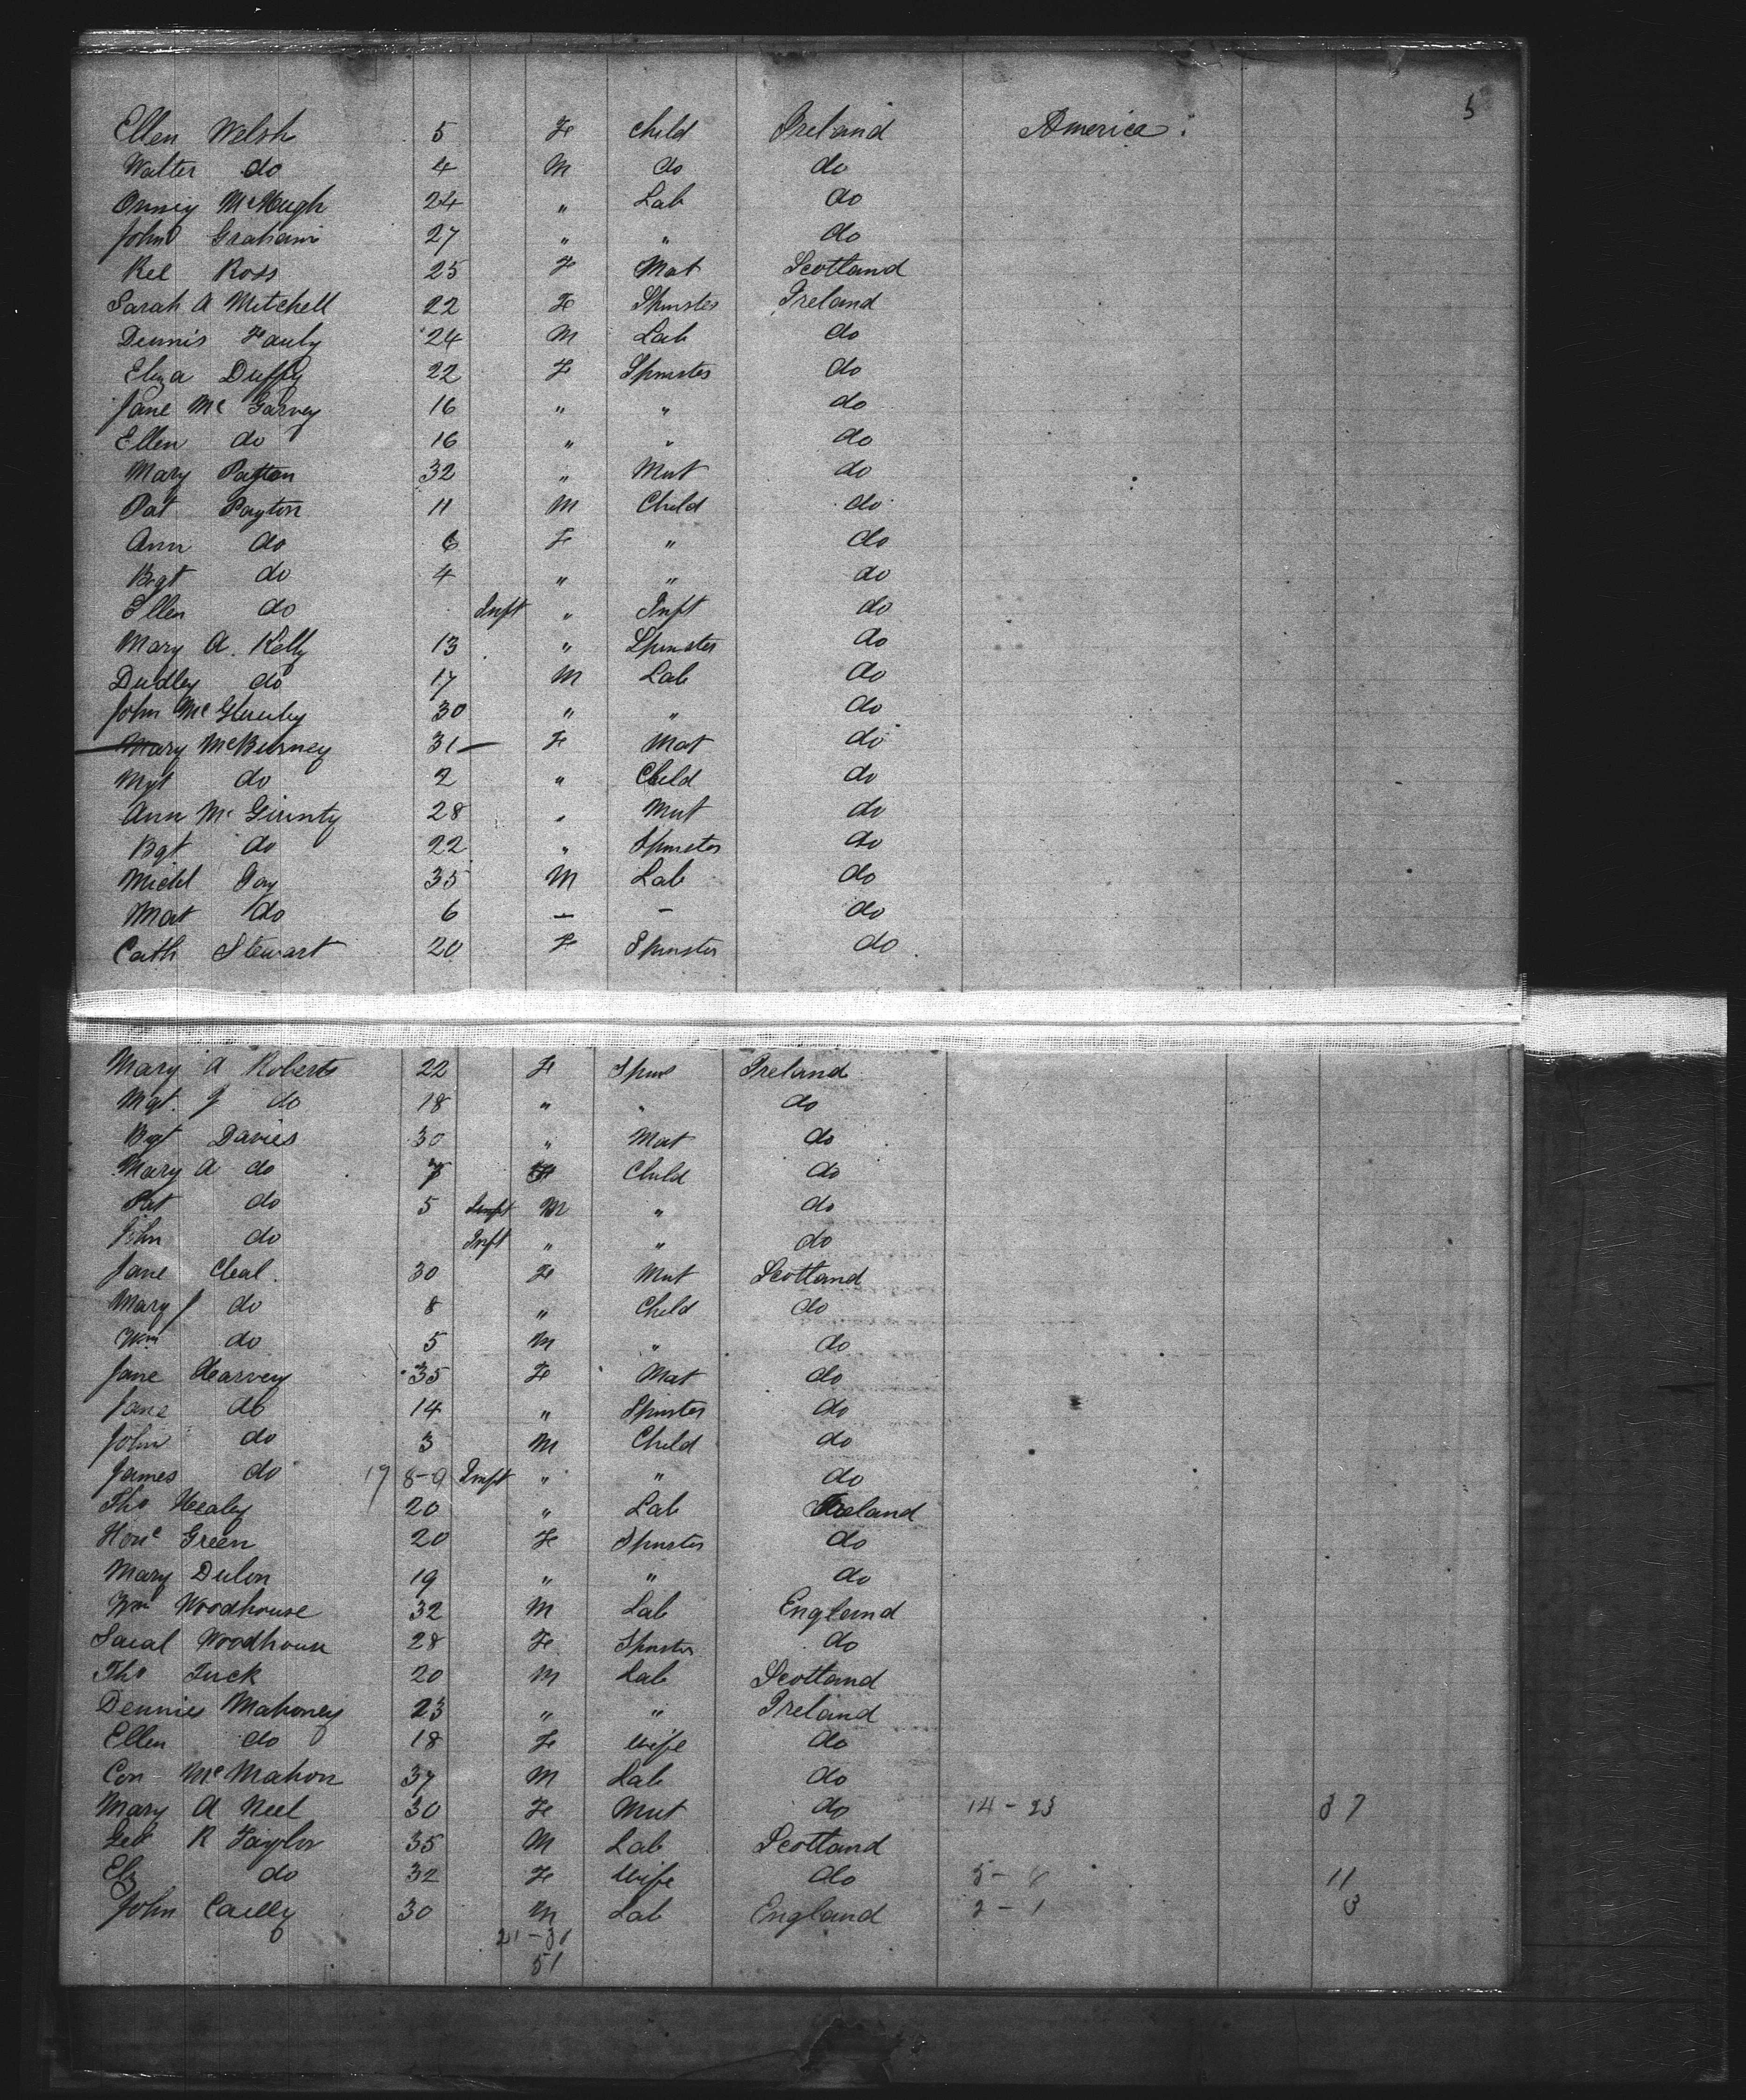 5
Ellen Welsh 5 F Child Ireland America.
Walter do 4 M do do
Onney McHugh 24 " Lab do
John Graham 27 " " do
Kel Ross 25 F Mat Scotland
Sarah A Mitchell 22 F Spinster Ireland
Dennis Fauly 24 M Lab do
Eliza Duffy 22 F Spinster do
Jane Mc Garvey 16 " " do
Ellen do 16 " " do
Mary Payton 32 " Mat do
Pat Payton 11 M Child do
Ann do 6 F " do
Bgt do 4 " " do
Ellen do Inft " Inft do
Mary A. Kelly 13 " Spinster do
Dudley do 17 M Lab do
John Mc 30 " " do
Mary McBurney 31 F Mat do
Mgt do 2 " Child do
Ann Mc Girinty 28 " Mat do
Bgt do 22 " Spinster do
Michl Gay 35 M Lab do
Mat do 6 — – do
Cath Stewart 20 F Spinster do
Mary A Roberts 22 F Spins Ireland
Mgt. J do 18 " " do
Bgt Davies 30 " Mat do
Mary A do 7 F Child do
Pat do 5 Inft M " do
John do Inft " " do
Jane Cleal 30 F Mat Scotland
Mary J do 8 " Child do
Wm do 5 M " do
Jane Harvey 35 F Mat do
Jane do 14 " Spinster do
John do 3 M Child do
James do 17 8-9 Inft " " do
Tho Healey 20 " Lab Ireland
Hone Green 20 F Spinster do
Mary Dulon 19 " " do
Wm Woodhouse 32 M Lab England
Saral Woodhouse 28 F Spinster do
Tho Tuck 20 M Lab Scotland
Dennies Mahoney 23 " " Ireland
Ellen do 18 F Wife do
Con McMahon 37 M Lab do
Mary A Neel 30 F Mat do 14 - 23 37
Geo R Taylor 35 M Lab Scotland
Elz do 32 F Wife do 5 - 6 11
John Cailly 30 M Lab England 2 - 1 3
21 - 30
51